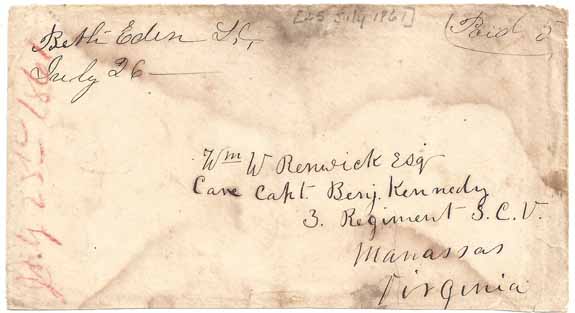 [25 July 1861]
Paid 5
Beth Eden S.C.
July 26
July 25th 1861
Wm W Renwick Esq
Care Capt. Benj. Kennedy
3. Regiment S.C.V.
Manassas
Virginia